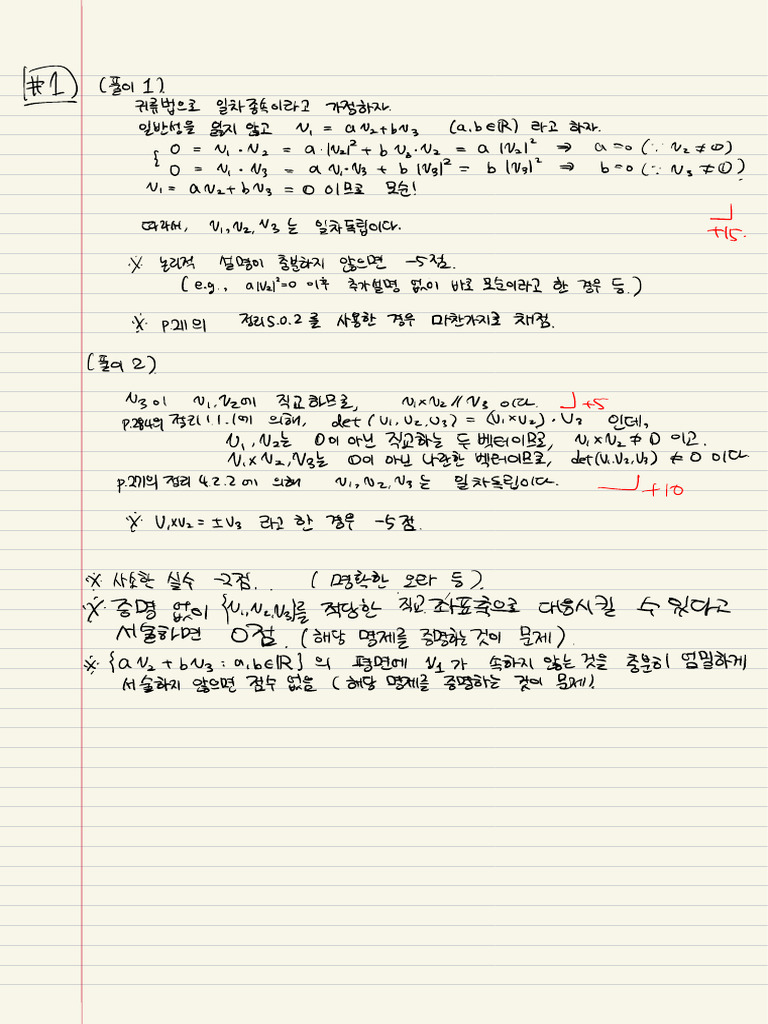 #1
(풀이 1)
귀류법으로 일차종속이라고 가정하자.
일반성을 잃지 않고 v₁ = av₂+bv₃ (a,b∈ℝ) 라고 하자.
{ 0 = v₁·v₂ = a·|v₂|² + b v₃·v₂ = a|v₂|² ⇒ a=0 (∵ v₂≠0)
0 = v₁·v₃ = a v₁·v₃ + b|v₃|² = b|v₃|² ⇒ b=0 (∵ v₃≠0)
v₁ = av₂+bv₃ = 0 이므로 모순!
따라서, v₁,v₂,v₃는 일차독립이다.
+15.
※ 논리적 설명이 충분하지 않으면 -5점.
(e.g., a|v₂|²=0 이후 추가설명 없이 바로 모순이라고 한 경우 등.)
※ p.211의 정리5.0.2를 사용한 경우 마찬가지로 채점.
(풀이 2)
v₃이 v₁,v₂에 직교하므로, v₁×v₂ // v₃ 이다. +5
p.284의 정리 1.1.1에 의해, det(v₁,v₂,v₃) = (v₁×v₂)·v₃ 인데,
v₁,v₂는 0이 아닌 직교하는 두 벡터이므로, v₁×v₂≠0 이고.
v₁×v₂,v₃는 0이 아닌 나란한 벡터이므로, det(v₁,v₂,v₃) ≠0 이다
p.271의 정리 4.2.2에 의해 v₁,v₂,v₃는 일차독립이다. +10
※ v₁×v₂=±v₃ 라고 한 경우 -5점.
※ 사소한 실수 -2점. (명확한 오타 등).
※ 증명 없이 {v₁,v₂,v₃}를 적당한 직교 좌표축으로 대응시킬 수 있다고
서술하면 0점. (해당 명제를 증명하는 것이 문제).
※ {av₂+bv₃ : a,b∈ℝ}의 평면에 v₁가 속하지 않는 것을 충분히 엄밀하게
서술하지 않으면 점수 없음 (해당 명제를 증명하는 것이 문제).